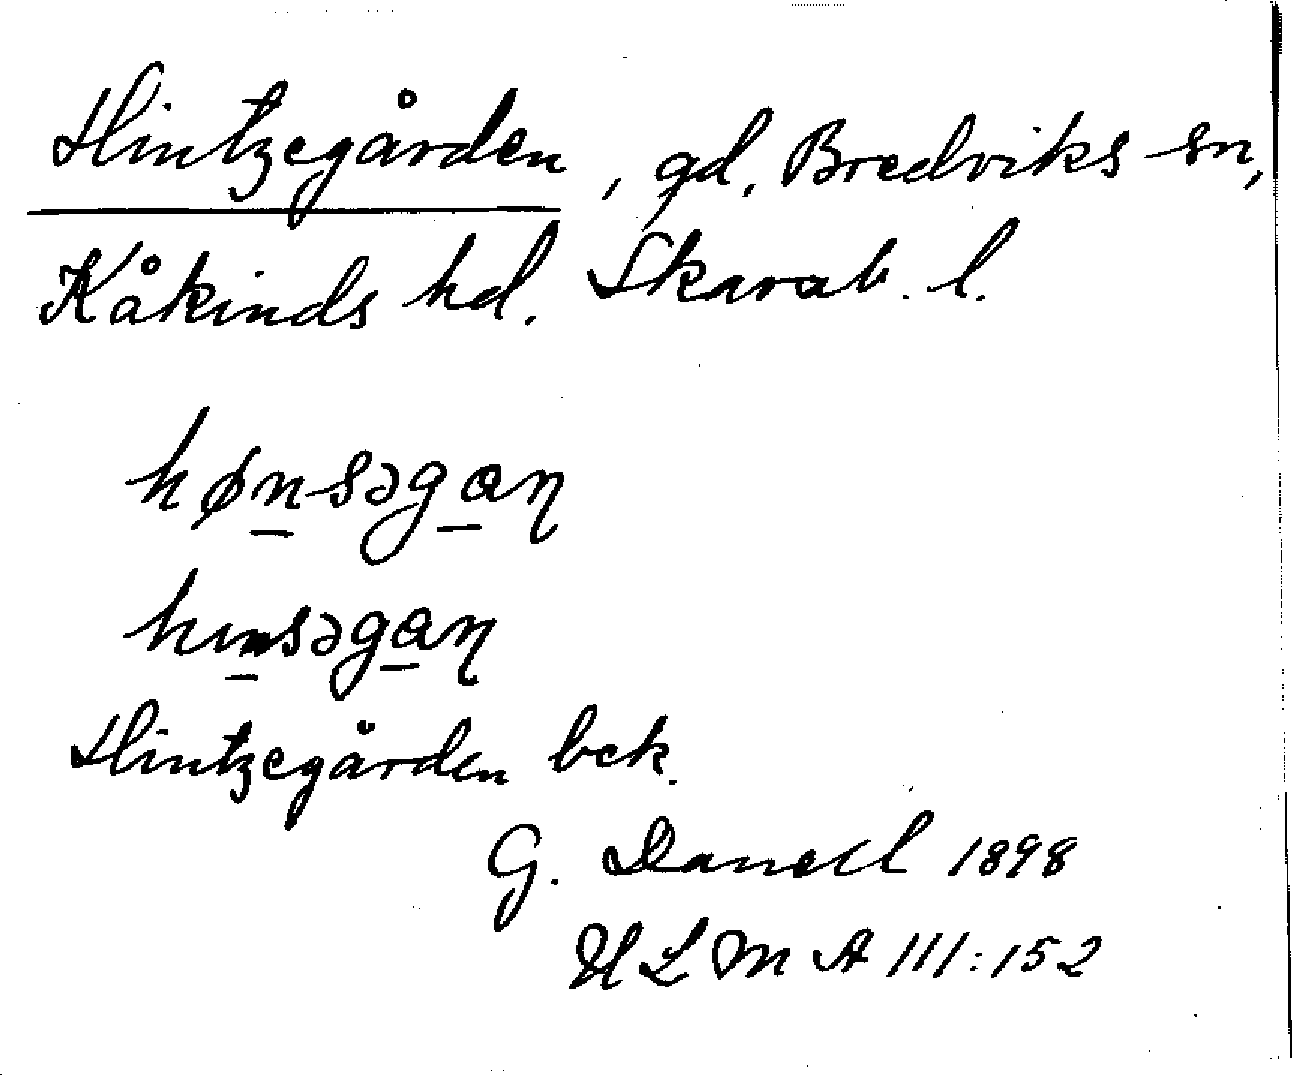 Hintzegården, gd, Bredviks sn,
Kåkinds hd. Skarab. l.
høn̲səga̲ɳ
hın̲səga̲ɳ
Hintzegården bek.
G. Danell 1898
ULMA 111:152